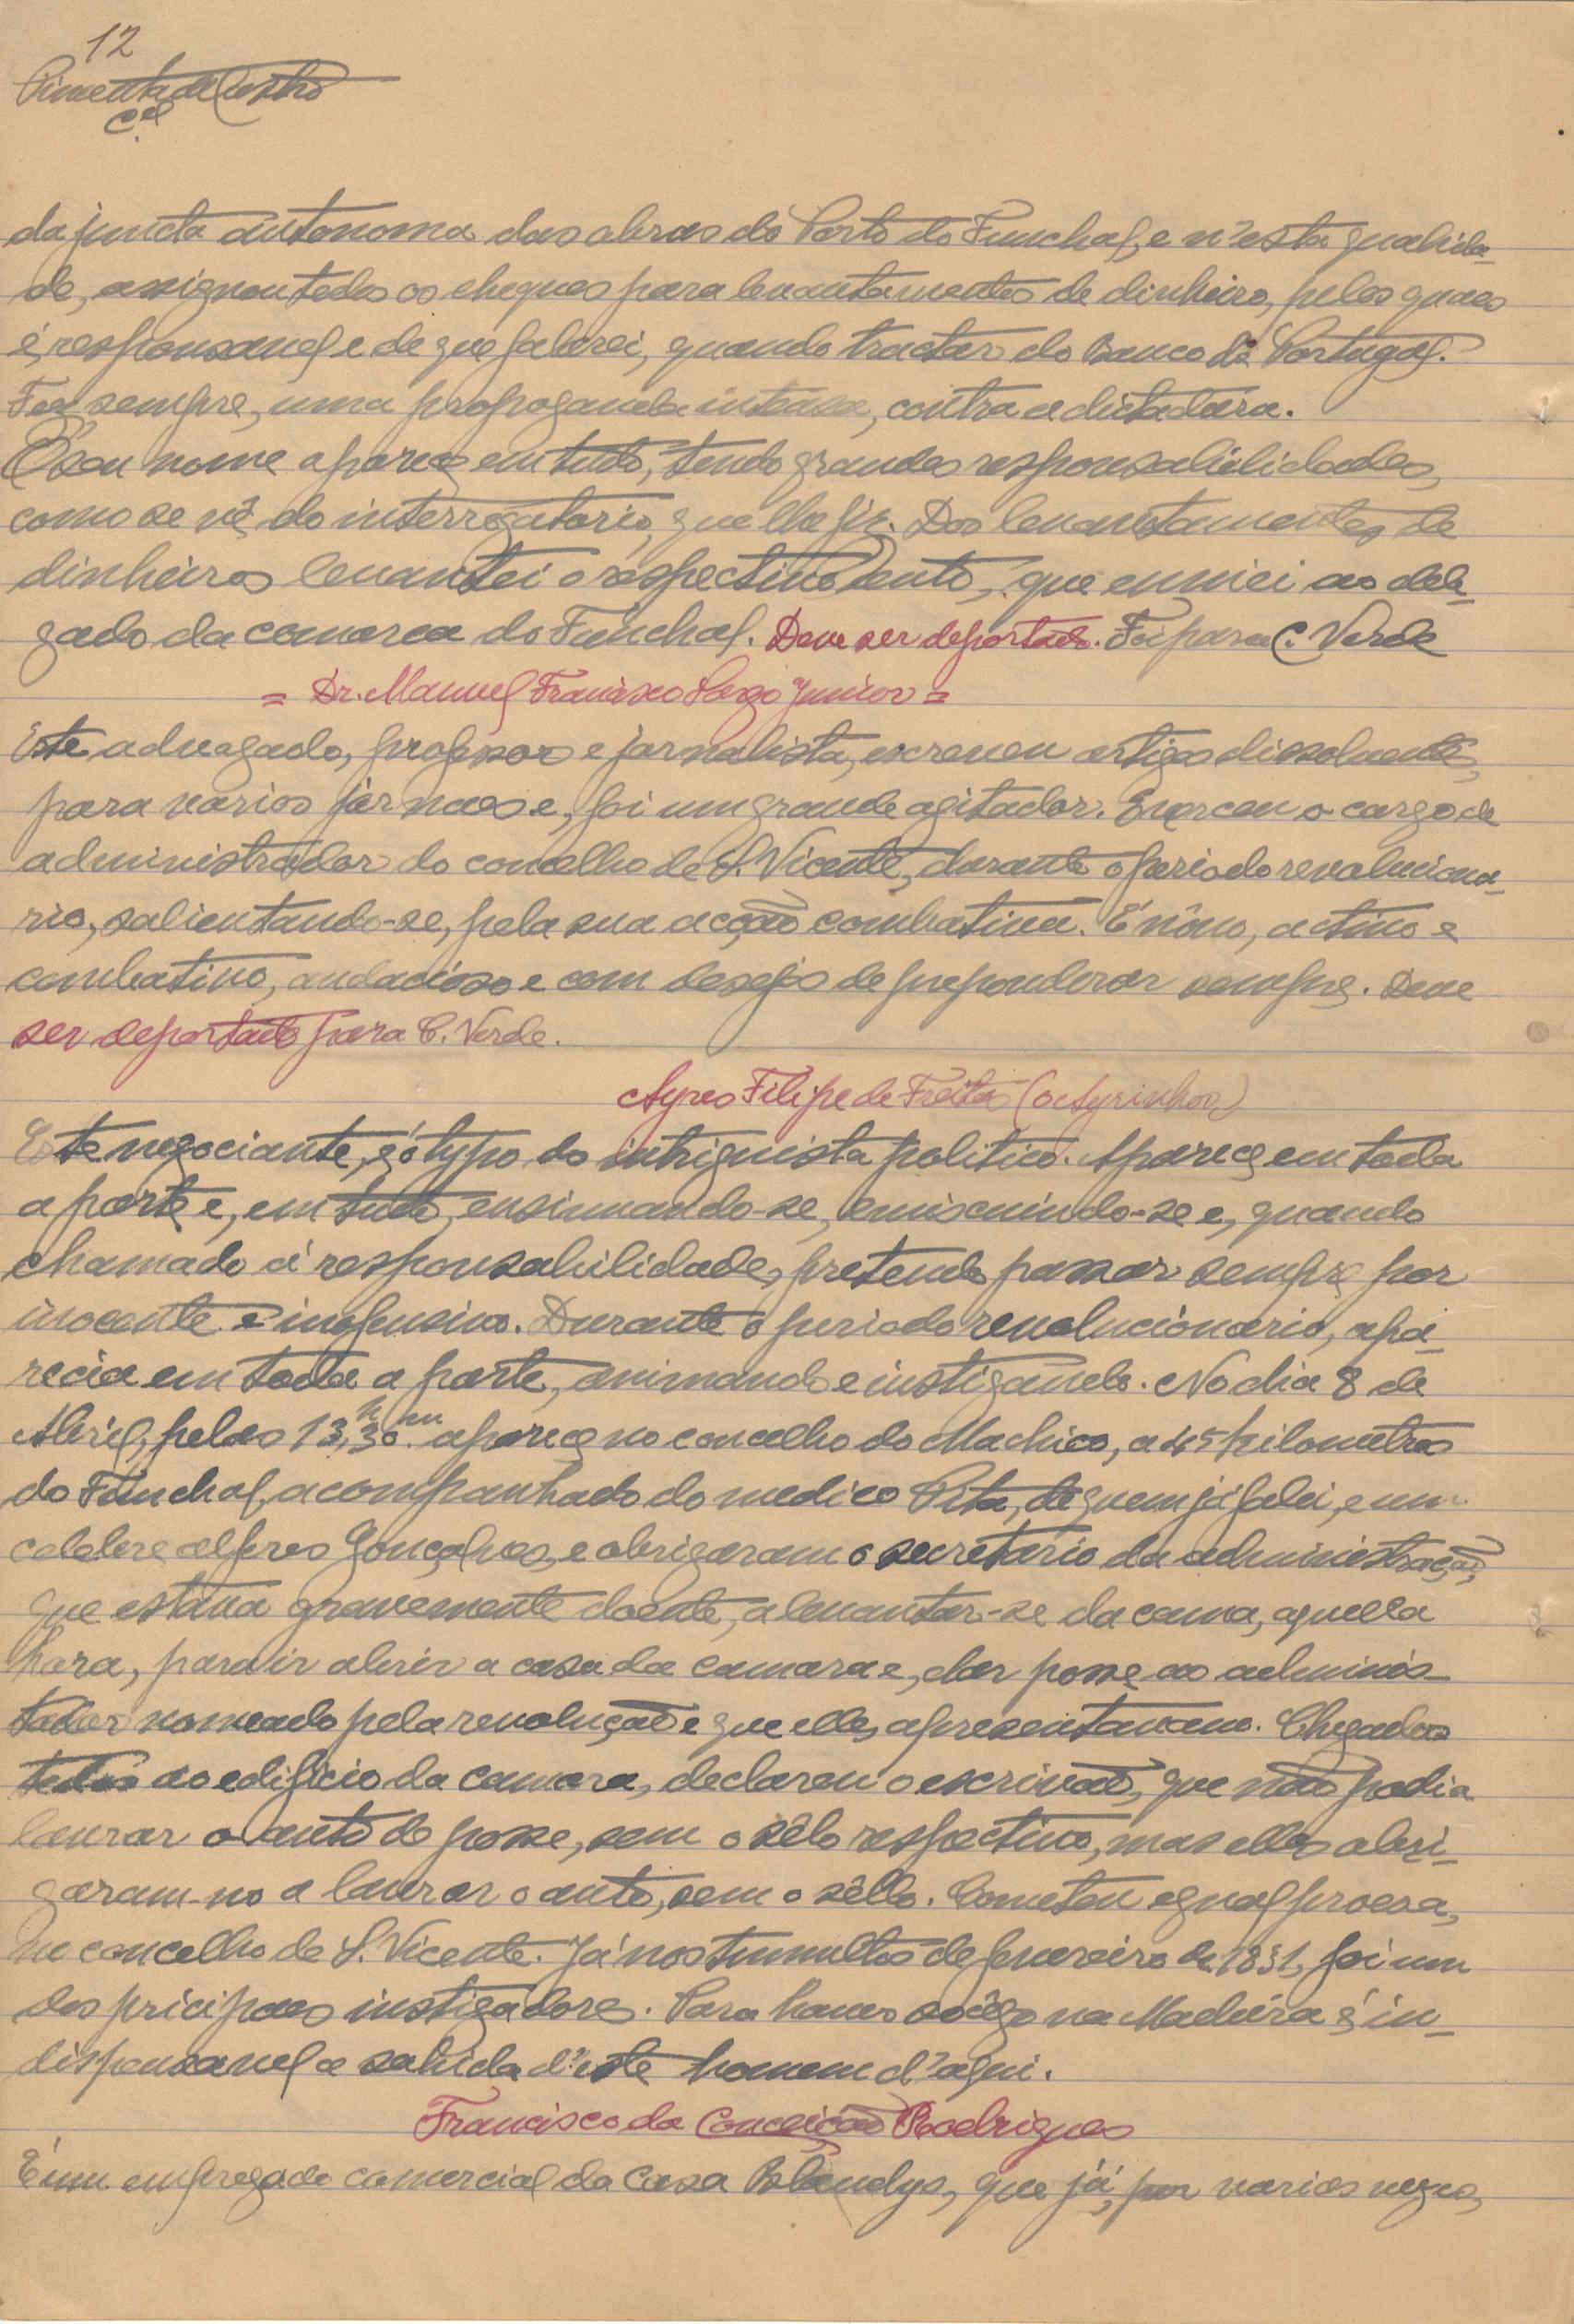 12
Pimenta de Castro
C.el
da juncta autonoma das obras do Porto do Funchal, e n'esta qualida-
de, assignou todos os cheques para levantamentos de dinheiro, pelos quaes
é responsavel e de que falarei, quando tractar do Banco de Portugal.
Fez sempre, uma propoganda intensa, contra a dictadura.
O seu nome aparece em tudo, tendo grandes responsabilidades,
como se vê do interrogatorio, que lhe fiz. Dos levantamentos de
dinheiros levantei o respectivo auto, que enviei ao dele-
gado da comarca do Funchal. Deve ser deportado. Foi para C. Verde
= Dr. Manuel Francisco Junior =
Este advogado, professor e jornalista, escreveu artigos dissolventes,
para varios jornaes e, foi um grande agitador. Exerceu o cargo de
administrador do concelho de S. Vicente, durante o periodo revoluciona-
rio, salientando-se, pela sua acção combativa. É nôvo, activo e
combativo, audacioso e com desejo de preponderar sempre. Deve
ser deportado para C. Verde.
Ayres Filipe de Freitas (o Ayrinhos)
Este negociante, é o typo do intriguista politico. Aparece em toda
a parte e, em tudo, ensinuando-se, emiscuindo-se e, quando
chamado á responsabilidade, pretende passar sempre por
inocente e inofensivo. Durante o periodo revolucionario, apa-
recia em toda a parte, animando e instigando. No dia 8 de
Abril, pelas 13,h30.m aparece no concelho do Machico, a 45 kilometros
do Funchal, acompanhado do medico Pita, de quem já falei, e um
celebre alferes Gonçalves, e obrigaram o secretario da administração,
que estava gravemente doente, a levantar-se da cama, aquella
hora, para ir abrir a casa da camara e, dar posse ao adminis-
tador nomeado pela revolução e que elles apresentavam. Chegados
todos ao edificio da camara, declarou o escrivão, que não podia
lavrar o auto de posse, sem o sêlo respectivo, mas elles obri-
garam-no a lavrar o auto, sem o sêllo. Cometeu egual proesa,
no concelho de S. Vicente. Já nos tumultos de fevereiro de 1931, foi um
dos pricipaes instigadores. Para haver socêgo na Madeira é in-
dispensavel a sahida d'este homem d'aqui.
Francisco da Conceição Rodrigues
É um empregado comercial da Casa Blandys, que já, por varias vezes,